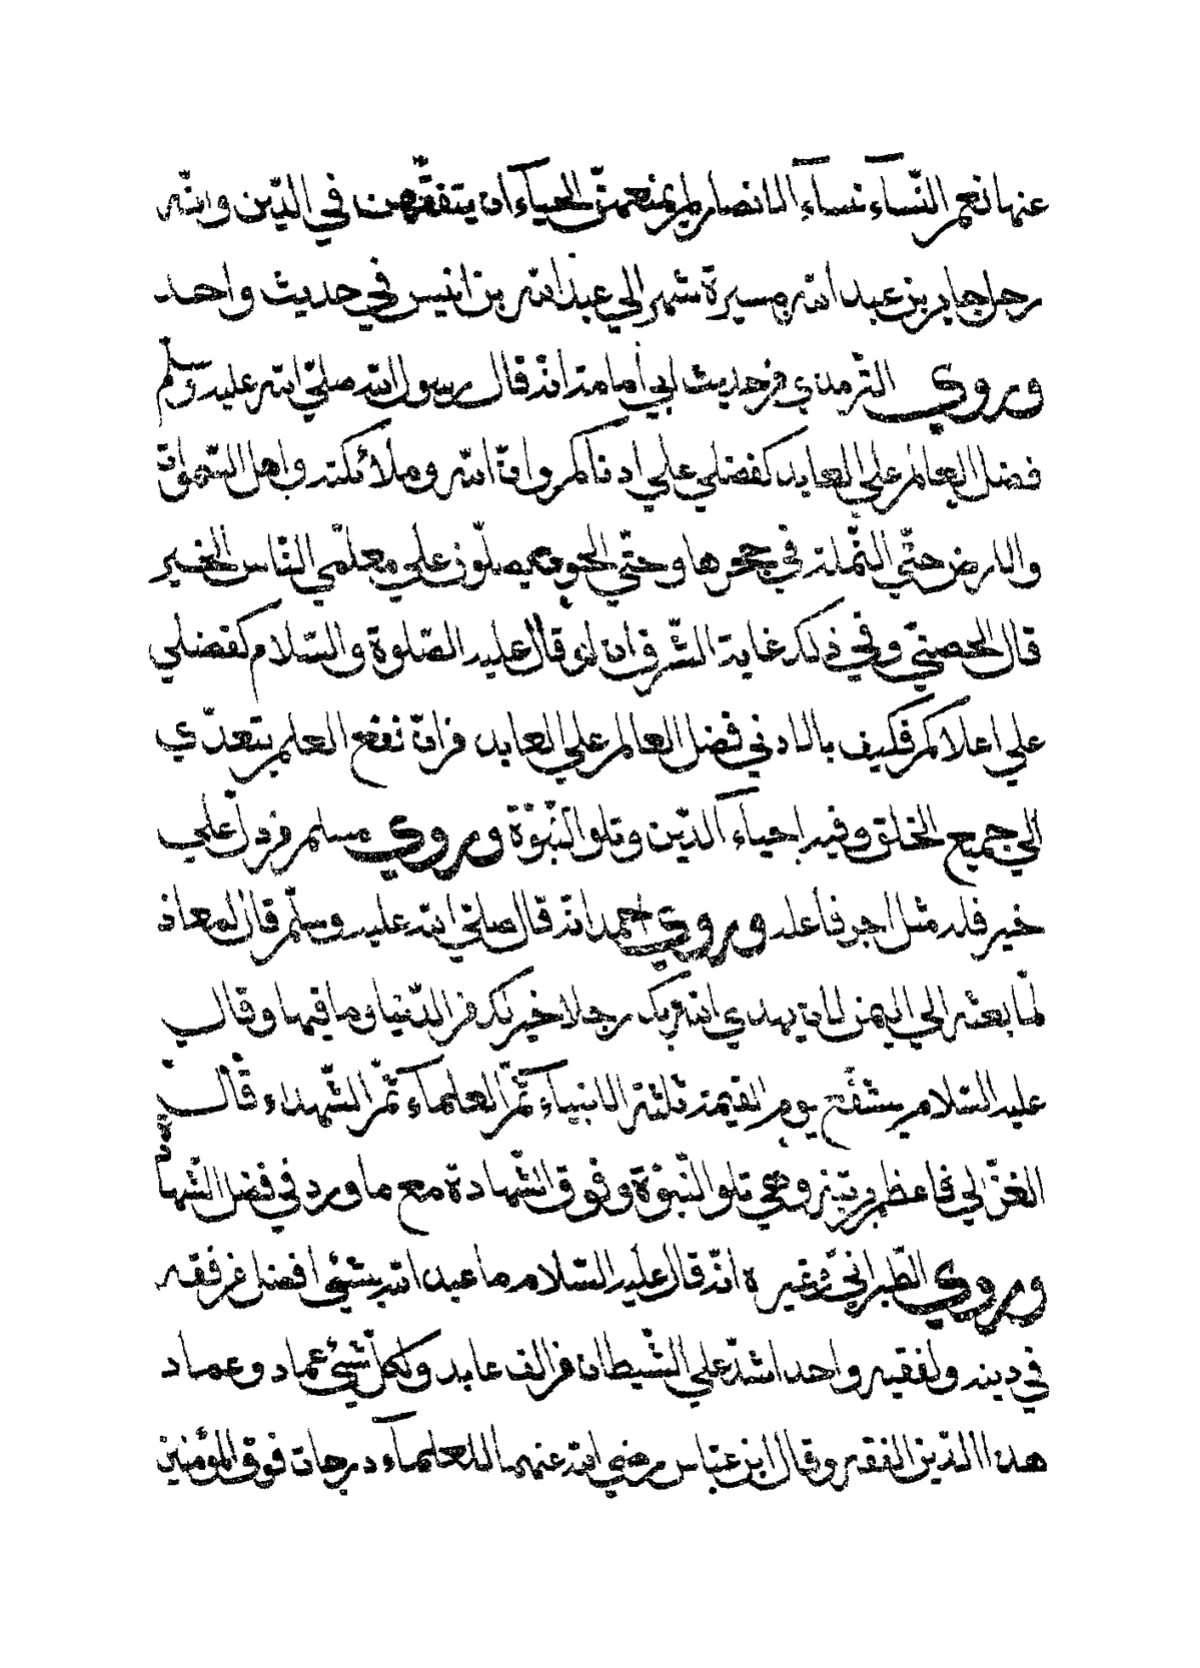 عنها نعم النّساء نساء الانصار لم يمنعهنّ الحياء ان يتفقّهن في الدّين وانّه
رحل جابر بن عبد الله مسيرة شهر الي عبد الله بن انيس في حديث واحد
وروي الترمذي من حديث ابي أمامة انه قال رسول الله صلّي الله عليه وسلم
فضل العالم علي العابد كفضلي علي ادناكم وانّ الله وملائكته واهل السّموات
والارض حتّي النّملة في جحرها وحتّي الحوت يصلّون علي معلّمي النّاس الخير
قال الحصني وفي ذلك غاية الشّرف ان لو قال عليه الصّلوة والسّلام كفضلي
علي اعلاكم فكيف بالادني فضل العالم علي العابد من انّ نفع العلم يتعدّي
الي جميع الخلق وفيه إحياء الدّين وتلو النّبوّة وروي مسلم من دلّ علي
خير فله مثل اجر فاعله وروي احمد انّه قال صلّي الله عليه وسلّم قال لمعاذ
لمّا بعثه الي اليمن لان يهدي الله بك رجلا خير لك من الدّنيا وما فيها وقال
عليه السّلام يشفّع يوم القيمة ثلثة الانبياء ثمّ العلماء ثمّ الشّهداء قال
الغزّالي فاعظم مرتبة وهي تلو النّبوّة وفوق الشّهادة مع ما ورد في فضل الشّهادة
وروي الطّبراني وغيره انّه قال عليه السّلام ما عبد الله بشيئ افضل من فقه
في دينه ولفقيه واحد اشدّ علي الشّيطان من الف عابد ولكلّ شيئ عماد وعماد
هذا الدّين الفقه وقال ابن عبّاس رضي الله عنهما للعلماء درجات فوق المؤمنين